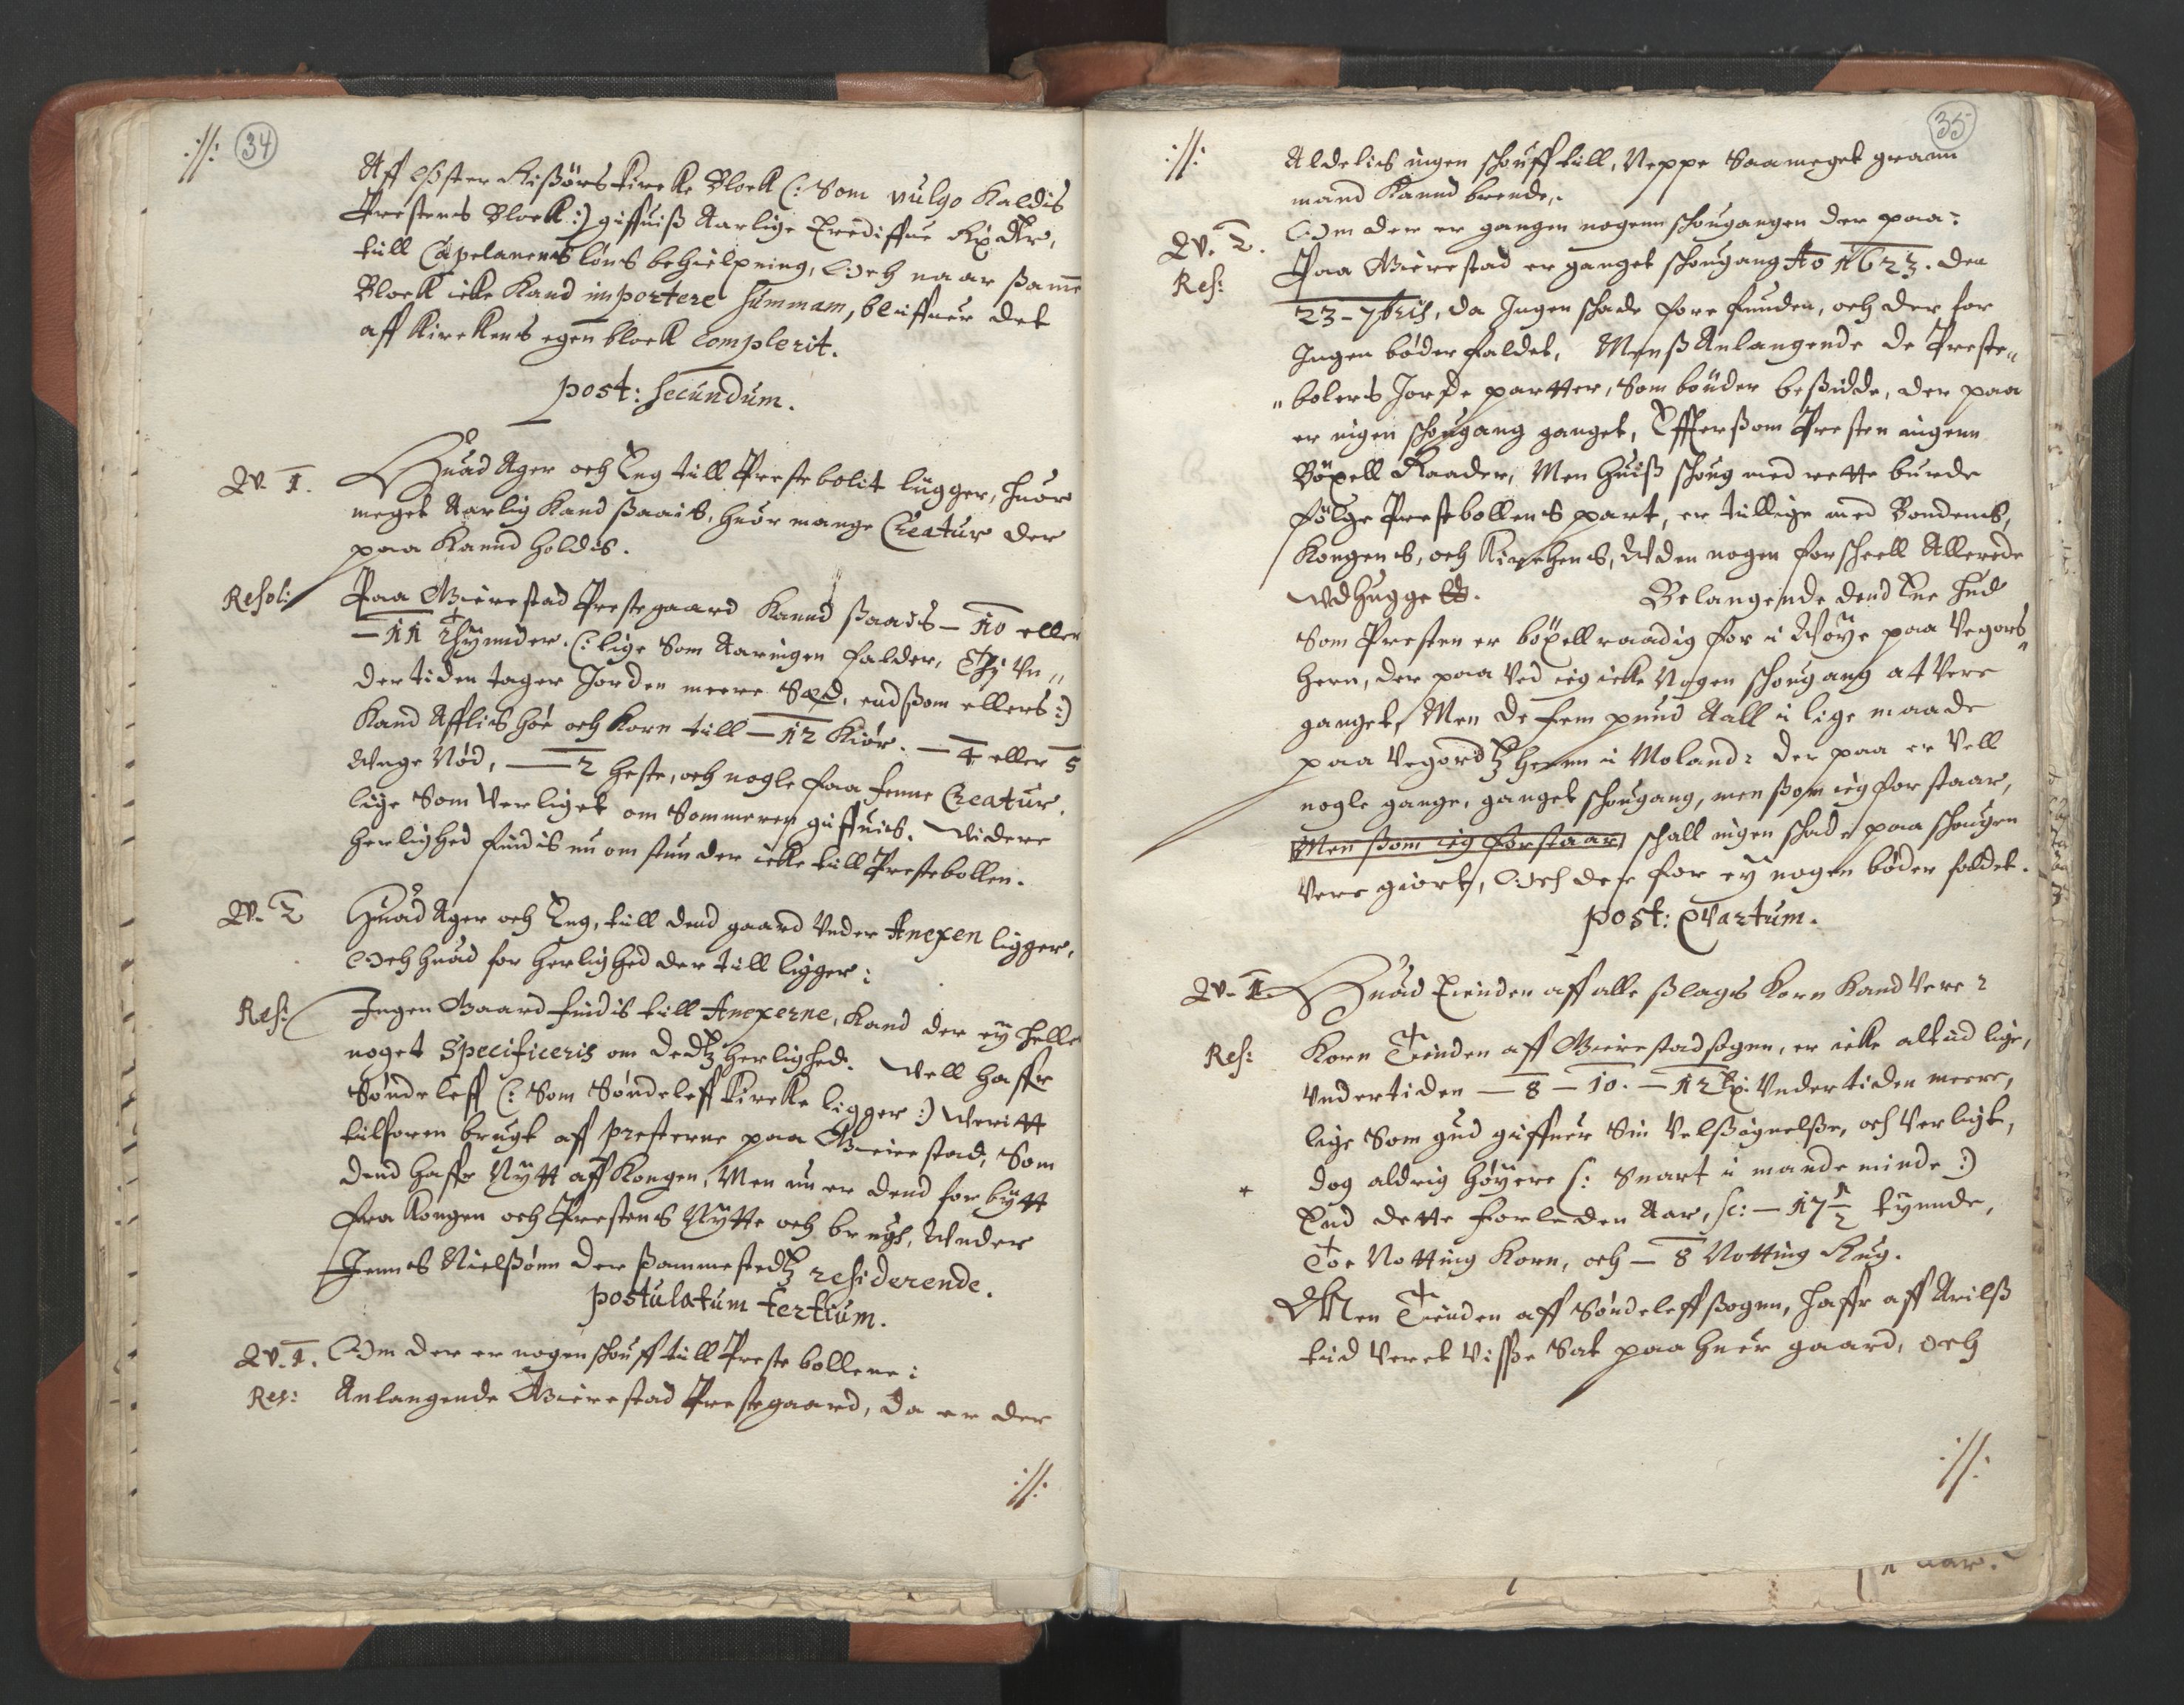 ://: 34
Aff Øster Rißørs Kircke Block (: Som vulgo Kaldis
Prestens Block :) giffuiß Aarlige Trediffue Rix dlr,
till Capelanens løns behielpning, Och naar ßamme
Block icke Kand importere summam, bliffuer det
aff Kirckens egen block complerit.
post: secundum.
Qv. 1. Huad Ager och Eng till Prestebolit ligger, huor
meget Aarlig Kand ßaais, huor mange Creatur der
paa Kannd holdis.
Resol: Paa Gierestad Prestegaard Kannd ßaads – 10 eller
– 11 Thynnder. (: lige Som Aaringen falder, Thi un„
dertiden tager Jorden meere Sæd, end ßom ellers :)
Kand Afflis høe och Korn till – 12 Kiør. – 4 eller 5
Unge Nød, – 2 heste, och nogle faa smue Creatur,
lige Som Verliget om Sommeren giffuis. Widere
herlighed findis nu om stunder icke till Prestebollen.
Qv. 2 Huad Ager och Eng, till dend gaard Under Anexen ligger,
Och huad for herlighed der till ligger:
Res: Ingen Gaard findis till Anexerne, Kand der eÿ heller
noget Specificeris om dedtz herlighed. Well haffr
Søndeleff (: Som Søndeleff Kircke ligger :) Weritt
tilforn brugt aff presterne paa Gierestad, Som
dend haffr Nÿtt aff Kongen, Men nu er dend forbÿtt
fra Kongen och Prestens Nÿtte och brugh, Under
Jenns Nielßønn der ßammestedtz residerende.
postulatum tertium.
Qv. 1. Om der er nogen schouff till Preste bollene:
Res: Anlangende Gierestad Prestegaard, da er der
:||:
:||: 35
Aldelis ingen schouff till, Neppe Saameget grann
mand Kannd brende.
Qv. 2. Om der er gangen nogenn schougangen der paa:
Res: Paa Gierestad er ganget schougang Ao 1623. den
23 – 7bris, da Ingen schade fore funden, och der for
Ingen bøder faldet, Menß Anlangende de Preste„
„bolens Jorde partter, Som bønder beßidde, der paa
er ingen schougang ganget, Effterßom Presten ingenn
Bøxell Raader, Men huiß schoug med rette burde
følge Prestebollens part, er tillige med Bondens,
Kongens, och Kirchens, Uden nogen forscheell Allerede
Udhugget. Belangende dend Ene hud
Som Presten er bøxell raadig for i Woÿe paa Vegors„
heen, der paa Ved ieg icke Nogen schougang at Vere
ganget, Men de fem pund Aall i lige maade
paa Vegordtzheenn i Moland: der paa er Vell
nogle gange, ganget schougang, men ßom ieg forstaar,
Men ßom ieg forstaar schall ingen schade paa schougen
Vere giort, Och der for eÿ nogen bøder faldet.
post: Qvartum.
Qv. 1. Huad Tienden aff alle ßlags Korn Kand Vere?
Res: Korn Tienden aff Gierestad ßogen, er icke altid lige,
Undertiden – 8 – 10. – 12 Undertiden meere,
lige Som gud giffuer Sin Velßignelße, och Verligt,
* dog aldrig høÿere (: Snart i mande minde :)
End dette forleden Aar, sc: – 17 1/2 tÿnnde,
Toe Notting Korn, och – 8 Notting Rug.
Men Tienden aff Søndeleff ßogen, haffr aff Arilß
tid Veret Viße Sat paa huer gaard, och
:||:
aar.